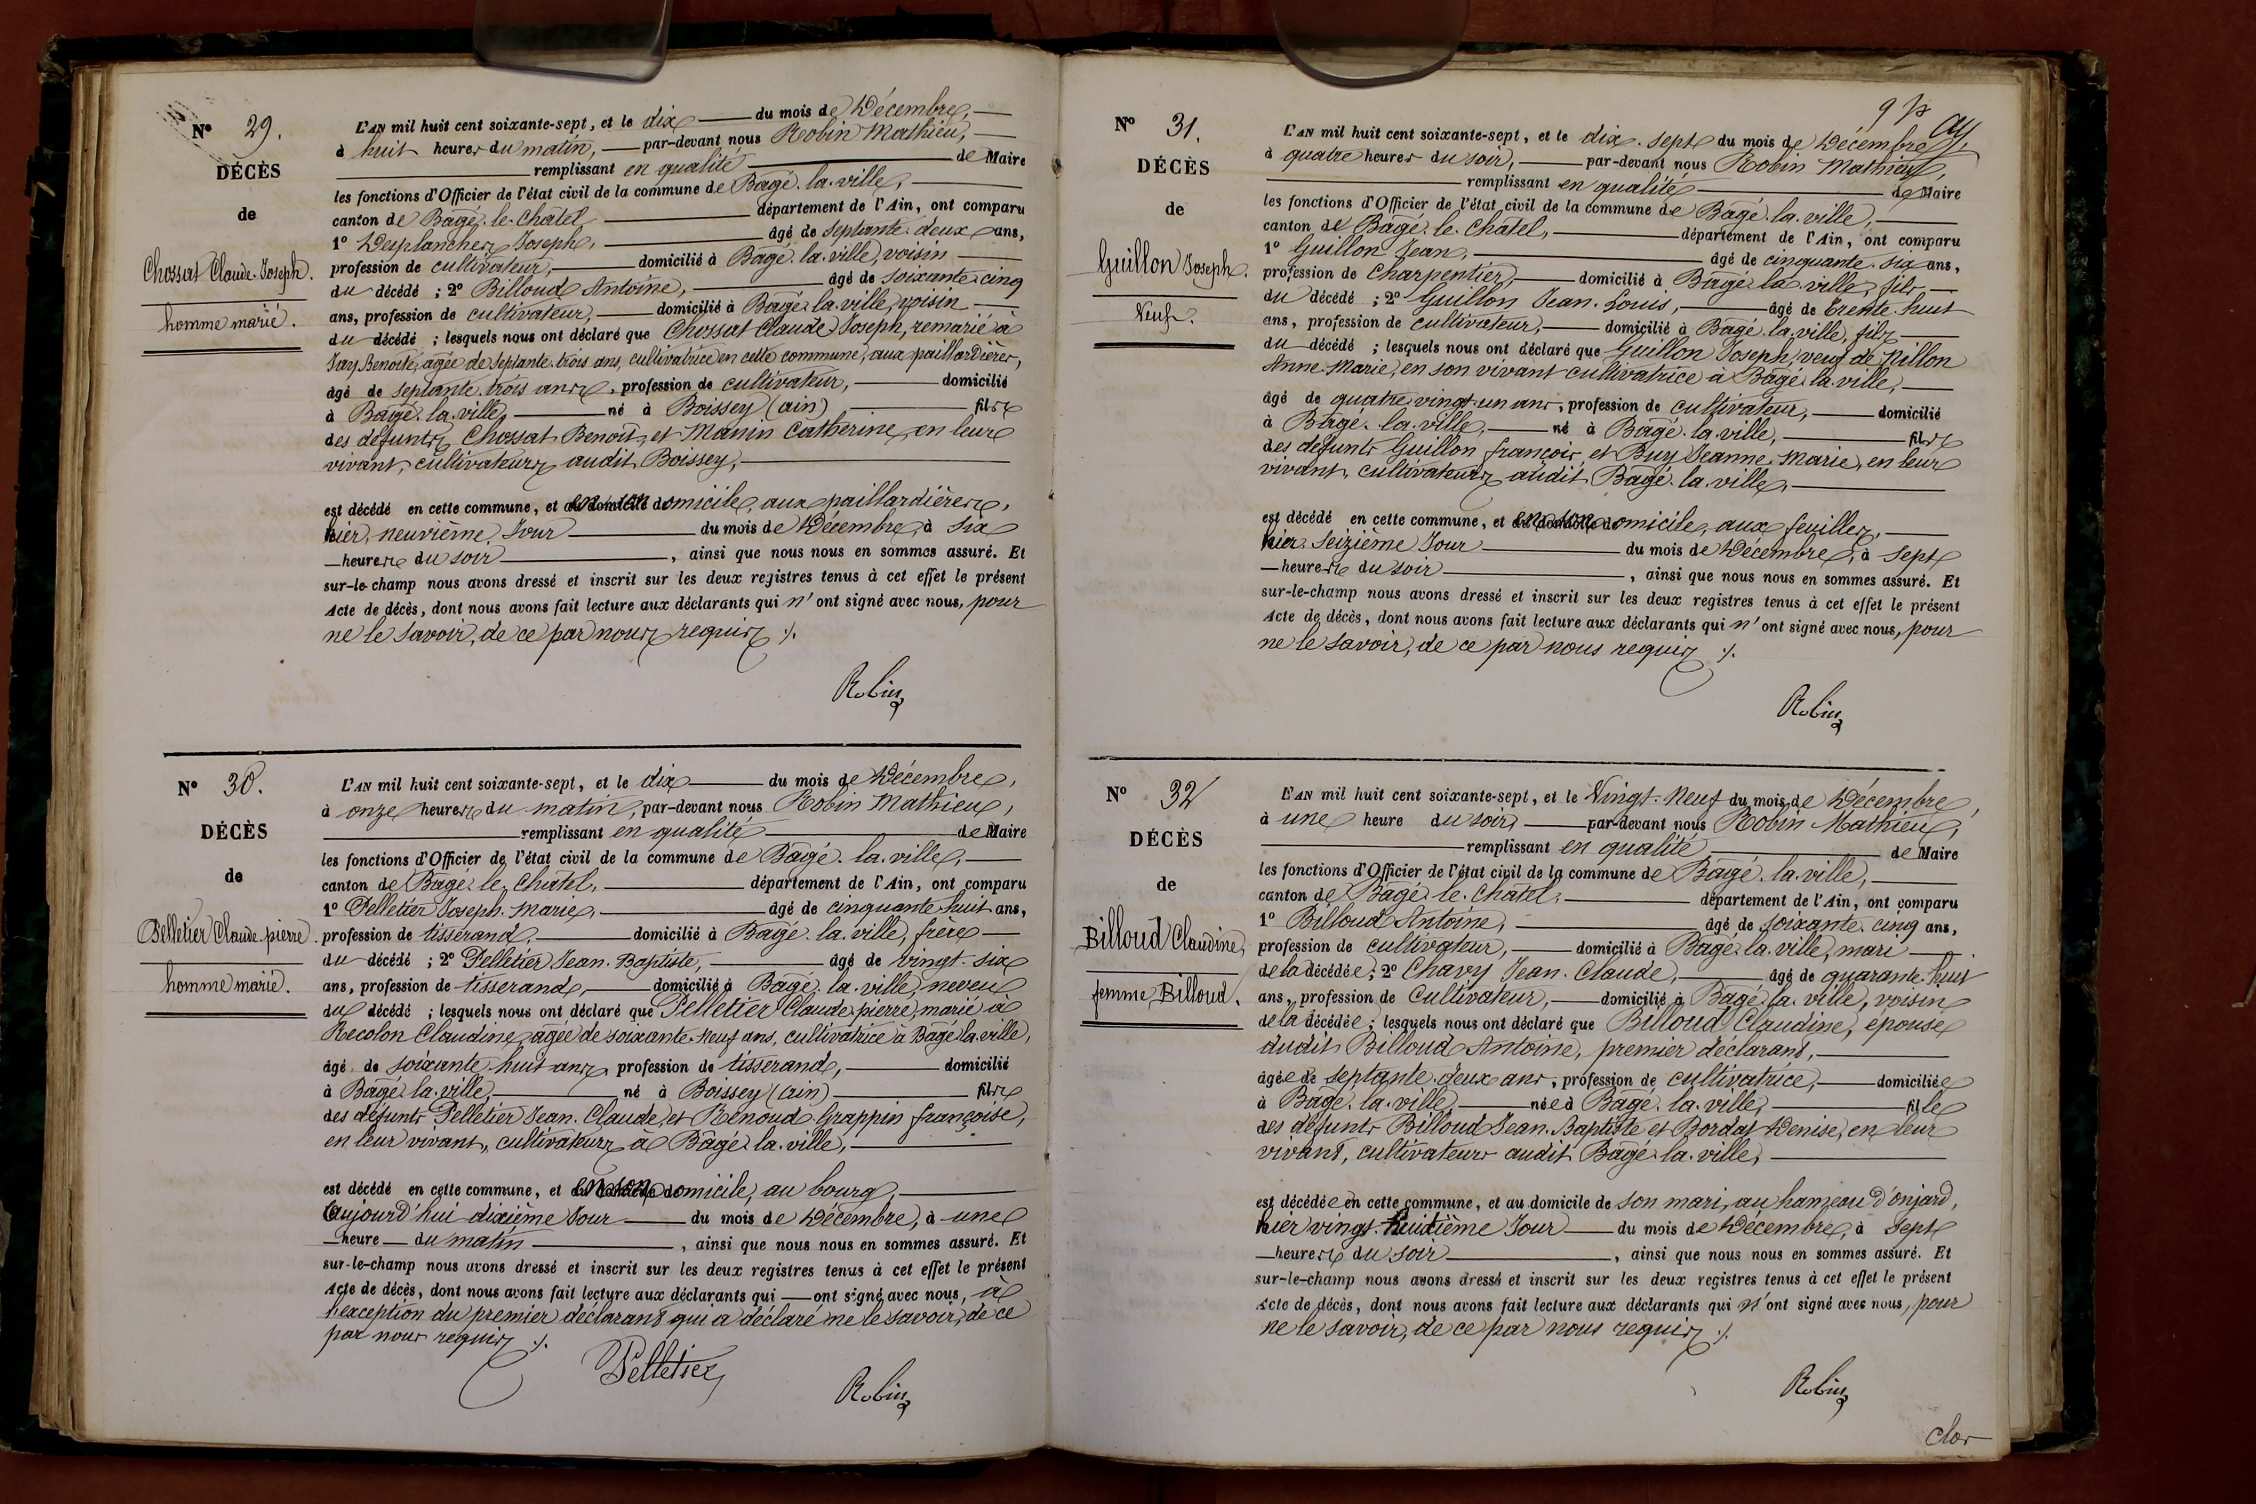 N° 29.
DÉCÈS
de
Chossat Claude-Joseph.
homme marié.
L'AN mil huit cent soixante-sept, et le dix du mois de Décembre,
à huit heures du matin, par-devant nous Robin Mathieu,
remplissant en qualité de Maire
les fonctions d'Officier de l'état civil de la commune de Bâgé-la-ville,
canton de Bâgé-le-Châtel département de l'Ain, ont comparu
1° Desplanches Joseph, âgé de septante-deux ans,
profession de cultivateur, domicilié à Bâgé-la-ville, voisin
du décédé ; 2° Billoud Antoine, âgé de soixante-cinq
ans, profession de cultivateur, domicilié à Bâgé-la-ville, voisin
du décédé ; lesquels nous ont déclaré que Chossat Claude Joseph, remarié à
Jay Benoîte, agée de septante-trois ans, cultivatrice en cette commune, aux paillardières,
âgé de septante-trois ans, profession de cultivateur, domicilié
à Bâgé-la-ville, né à Boissey (ain) fils
des défunts Chossat Benoît, et Manin Catherine, en leur
vivant, cultivateurs audit Boissey,
est décédé en cette commune, et en son domicile, aux paillardières,
hier, neuvième Jour du mois de Décembre, à six
heures du soir, ainsi que nous nous en sommes assuré. Et
sur-le-champ nous avons dressé et inscrit sur les deux registres tenus à cet effet le présent
Acte de décès, dont nous avons fait lecture aux déclarants qui n'ont signé avec nous, pour
ne le savoir, de ce par nous requis ./.
Robin
N° 30.
DÉCÈS
de
Pelletier Claude-pierre.
homme marié.
L'AN mil huit cent soixante-sept, et le dix du mois de Décembre,
à onze heures du matin, par-devant nous Robin Mathieu,
remplissant en qualité de Maire
les fonctions d'Officier de l'état civil de la commune de Bâgé-la-ville,
canton de Bâgé-le-Châtel, département de l'Ain, ont comparu
1° Pelletier Joseph-Marie, âgé de cinquante-huit ans,
profession de tisserand, domicilié à Bâgé-la-ville, frère
du décédé ; 2° Pelletier Jean-Baptiste, âgé de vingt-six
ans, profession de tisserand, domicilié à Bâgé-la-ville, neveu
du décédé ; lesquels nous ont déclaré que Pelletier Claude pierre, marié à
Recolon Claudine, agée de soixante-neuf ans, cultivatrice à Bâgé-la-ville,
âgé de soixante-huit ans, profession de tisserand, domicilié
à Bâgé-la-ville, né à Boissey (ain) fils
des défunts Pelletier Jean-Claude, et Renoud-Grappin françoise,
en leur vivant, cultivateurs à Bâgé-la-ville,
est décédé en cette commune, et en son domicile, au bourg,
aujourd'hui dixième Jour du mois de Décembre, à une
heure du matin, ainsi que nous nous en sommes assuré. Et
sur-le-champ nous avons dressé et inscrit sur les deux registres tenus à cet effet le présent
Acte de décès, dont nous avons fait lecture aux déclarants qui ont signé avec nous, à
l'exception du premier déclarant qui a déclaré ne le savoir, de ce
par nous requis ./.
Pelletier
Robin
N° 31.
DÉCÈS
de
Guillon Joseph.
Veuf.
L'AN mil huit cent soixante-sept, et le dix-sept du mois de Décembre,
à quatre heures du soir, par-devant nous Robin Mathieu,
remplissant en qualité de Maire
les fonctions d'Officier de l'état civil de la commune de Bâgé-la-ville,
canton de Bâgé-le-Châtel, département de l'Ain, ont comparu
1° Guillon Jean, âgé de cinquante-six ans,
profession de Charpentier, domicilié à Bâgé-la-ville, fils
du décédé ; 2° Guillon Jean-Louis, âgé de trente-huit
ans, profession de cultivateur, domicilié à Bâgé-la-ville, fils
du décédé ; lesquels nous ont déclaré que Guillon Joseph, veuf de Nillon
Anne-Marie, en son vivant cultivatrice à Bâgé-la-ville,
âgé de quatre-vingt-un ans, profession de cultivateur, domicilié
à Bâgé-la-ville, né à Bâgé-la-ville, fils
des défunts Guillon françois, et Buy Jeanne-Marie, en leur
vivant, cultivateurs audit Bâgé-la-ville,
est décédé en cette commune, et en son domicile, aux feuilles,
hier seizième Jour du mois de Décembre, à sept
heures du soir, ainsi que nous nous en sommes assuré. Et
sur-le-champ nous avons dressé et inscrit sur les deux registres tenus à cet effet le présent
Acte de décès, dont nous avons fait lecture aux déclarants qui n'ont signé avec nous, pour
ne le savoir, de ce par nous requis ./.
Robin
N° 32
DÉCÈS
de
Billoud Claudine,
femme Billoud.
L'AN mil huit cent soixante-sept, et le Vingt-Neuf du mois de Décembre,
à une heure du soir, par-devant nous Robin Mathieu,
remplissant en qualité de Maire
les fonctions d'Officier de l'état civil de la commune de Bâgé-la-ville,
canton de Bâgé-le-Châtel, département de l'Ain, ont comparu
1° Billoud Antoine, âgé de soixante-cinq ans,
profession de cultivateur, domicilié à Bâgé-la-ville, mari
de la décédée ; 2° Chavy Jean-Claude, âgé de quarante-huit
ans, profession de Cultivateur, domicilié à Bâgé-la-ville, voisin
de la décédée ; lesquels nous ont déclaré que Billoud Claudine, épouse
dudit Billoud Antoine, premier déclarant,
âgée de septante-deux ans, profession de cultivatrice, domiciliée
à Bâgé-la-ville, née à Bâgé-la-ville, fille
des défunts Billoud Jean-Baptiste et Bordat Denise, en leur
vivant, cultivateurs audit Bâgé-la-ville,
est décédée en cette commune, et au domicile de son mari, au hameau d'onjard,
hier vingt-huitième Jour du mois de Décembre, à sept
heures du soir, ainsi que nous nous en sommes assuré. Et
sur-le-champ nous avons dressé et inscrit sur les deux registres tenus à cet effet le présent
Acte de décès, dont nous avons fait lecture aux déclarants qui n'ont signé avec nous, pour
ne le savoir, de ce par nous requis ./.
Robin
clos